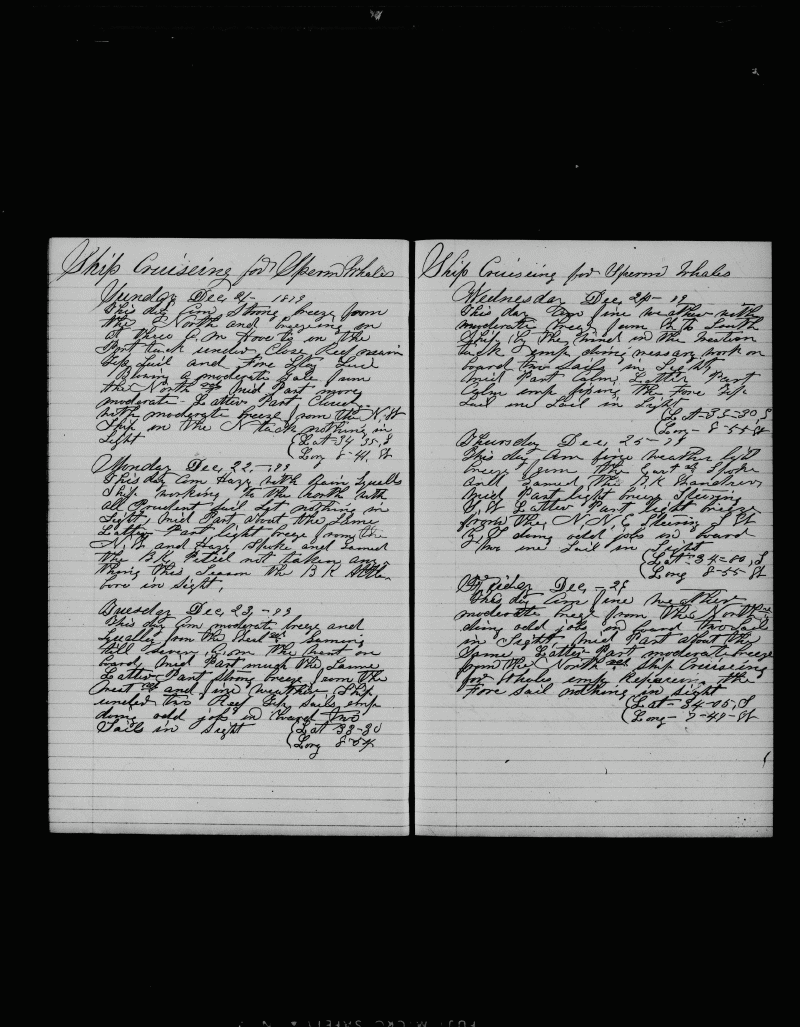 Ship Cruiseing for Sperm Whales
Sunday Dec 21 - 1879
This day Com Strong breeze from
the North and breezing on
at three P.m Hove to in the
Port tack under Close Reef main
Top Sail and Fore Stay Sail
Blowing a moderate Gale from
the North Mid Part more
moderate - Latter Part Cloudy
with moderate breeze from the N.W
Ship on the N tack nothing in
Sight (Lat - 34-35, S
(Long 8-41, W
Monday Dec, 22, - 79
This day Com Hazy with Rain Squalls
Ship working to the North with
all Prudent Sail Set nothing in
Sight, Mid Part about the Same
Latter Part light breeze from the
N.W and Hazy Spoke and Gamed
the B.K Petrel not taken any
thing this Season the B K
bore in Sight,
Tuesday Dec, 23, - 79
This day Com moderate breeze and
Squally from the West Gaming
till Seven P.m the went on
board, Mid Part much the Same
Latter Part Strong breeze from the
West and fine weather Ship
under two Reef Top Sails emp
doing odd jobs on board two
Sails in Sight (Lat 33-30
(Long 8-54
Ship Cruiseing for Sperm Whales
Wednesday Dec, 24 - 79
This day Com fine weather with
moderate breeze from W to South
Ship by the Wind on the western
tack emp doing nessary work on
board two Sails in Sight
Mid Part Calm, Latter Part
Calm emp fixing the Fore Top
Sail one Sail in Sight
(Lat - 33-30 S
(Long - 8-55 W
Thursday Dec, 25 - 79
This day Com fine weather light
breeze from the East Spoke
and Gamed the B.K
Mid Part light breeze Steering
W Latter Part light breeze
from the N.N.E Steering S W
by S doing odd jobs on board
one Sail in Sight
(Lat - 34-00, S
(Long 8-55 W
Friday Dec, - 26
This day Com fine weather
moderate breeze from the North
doing odd jobs on board two Sails
in Sight Mid Part about the
Same Latter Part moderate breeze
from the North Ship Cruiseing
for Whales emp Repairing the
Fore Sail nothing in Sight
(Lat - 34-05, S
(Long - 7-49 W